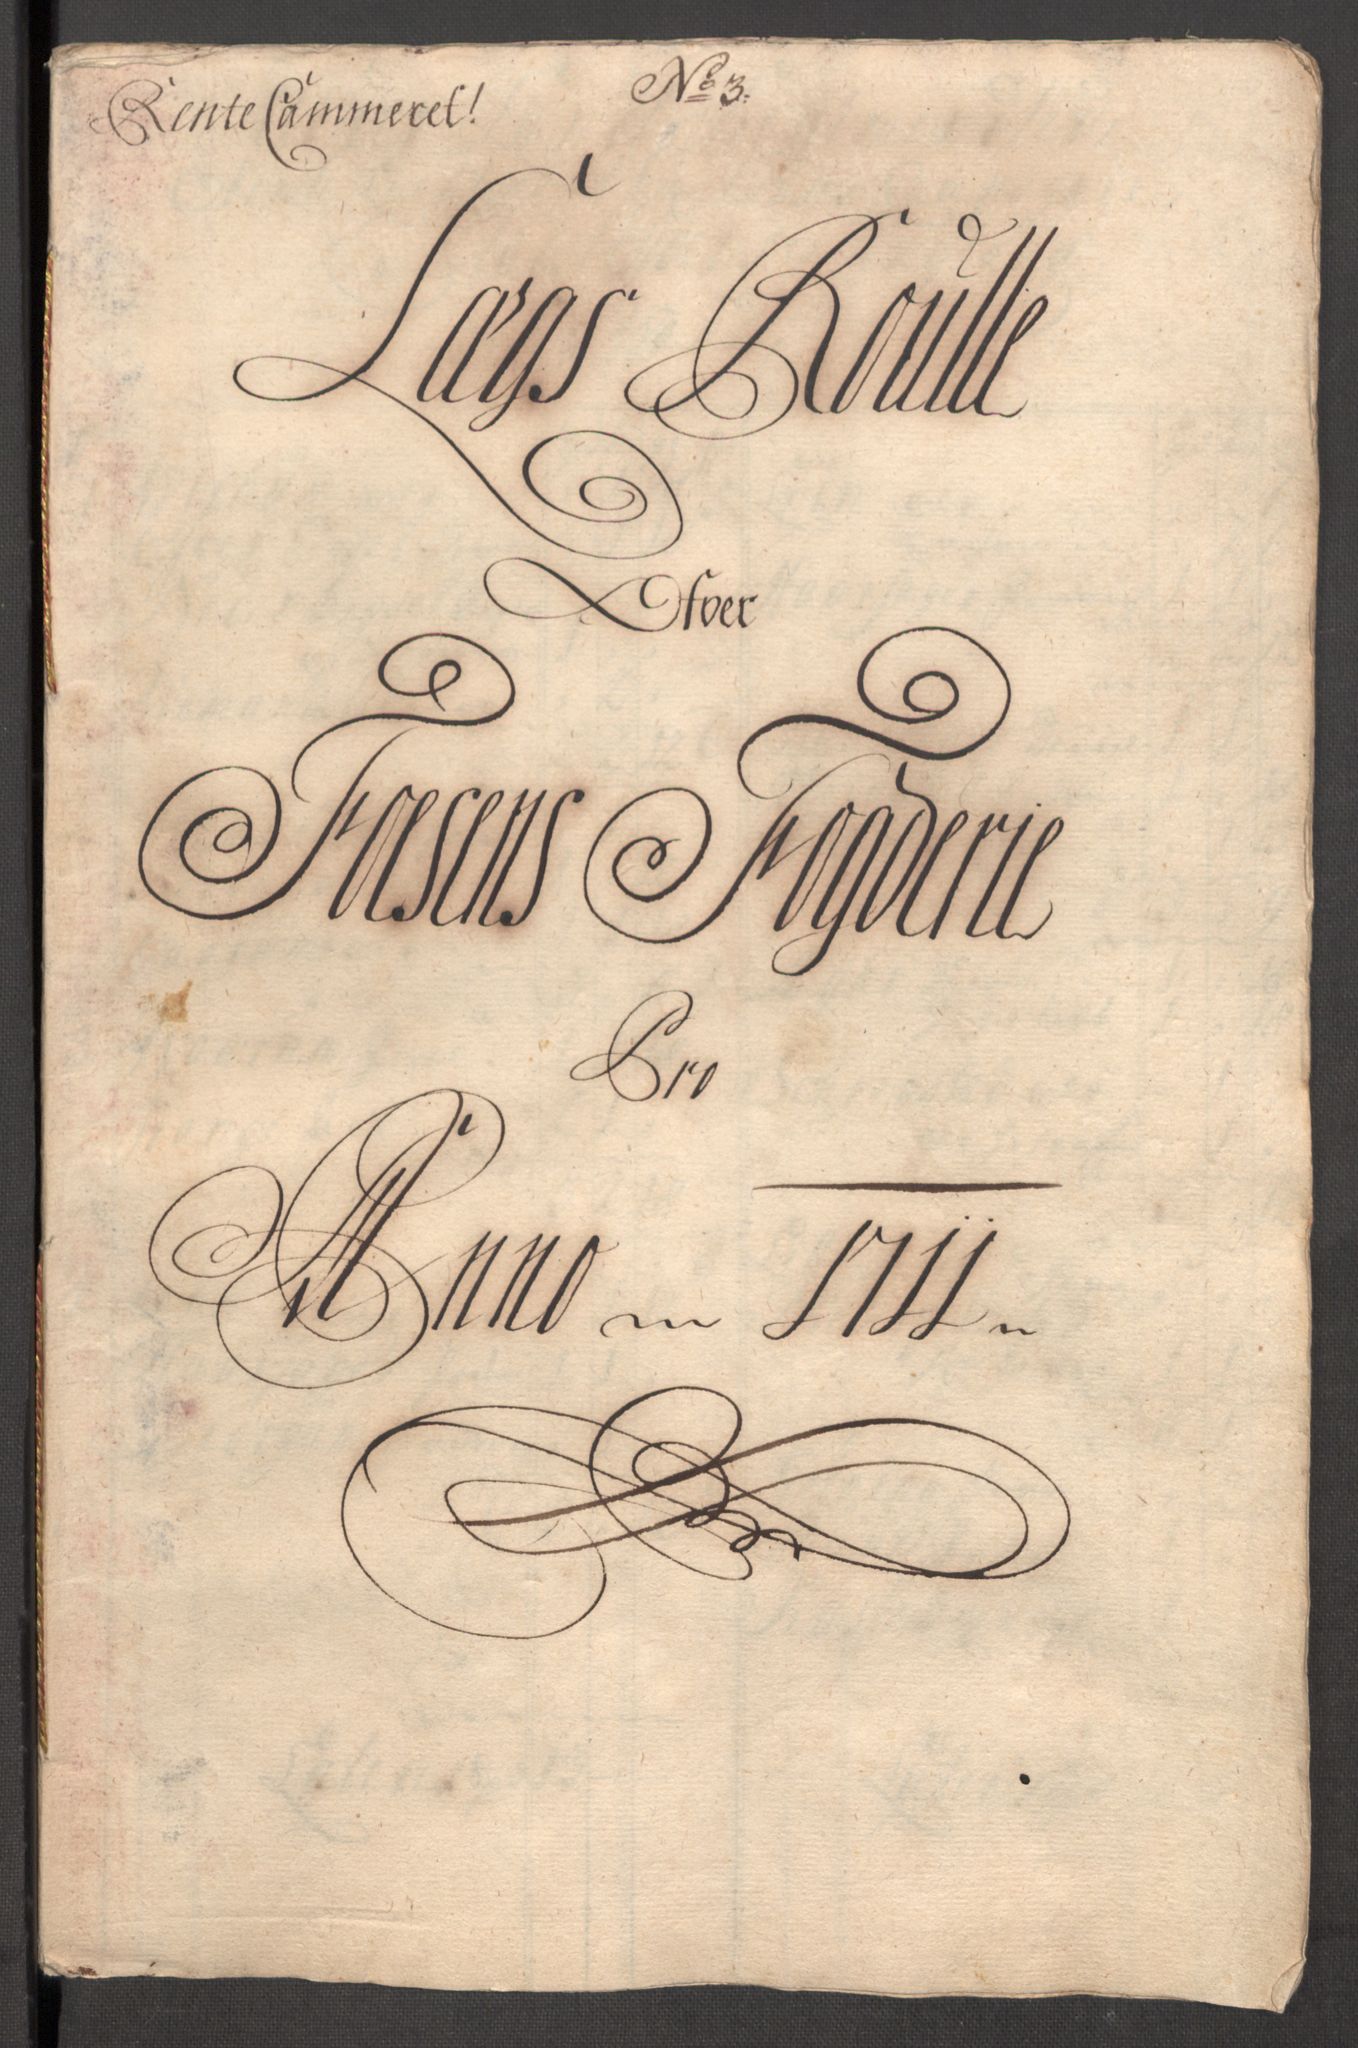 Rente Cammeret!
No 3.
Lægs Roulle
Ofver
Foesens Fogderie
Pro
Anno 1711